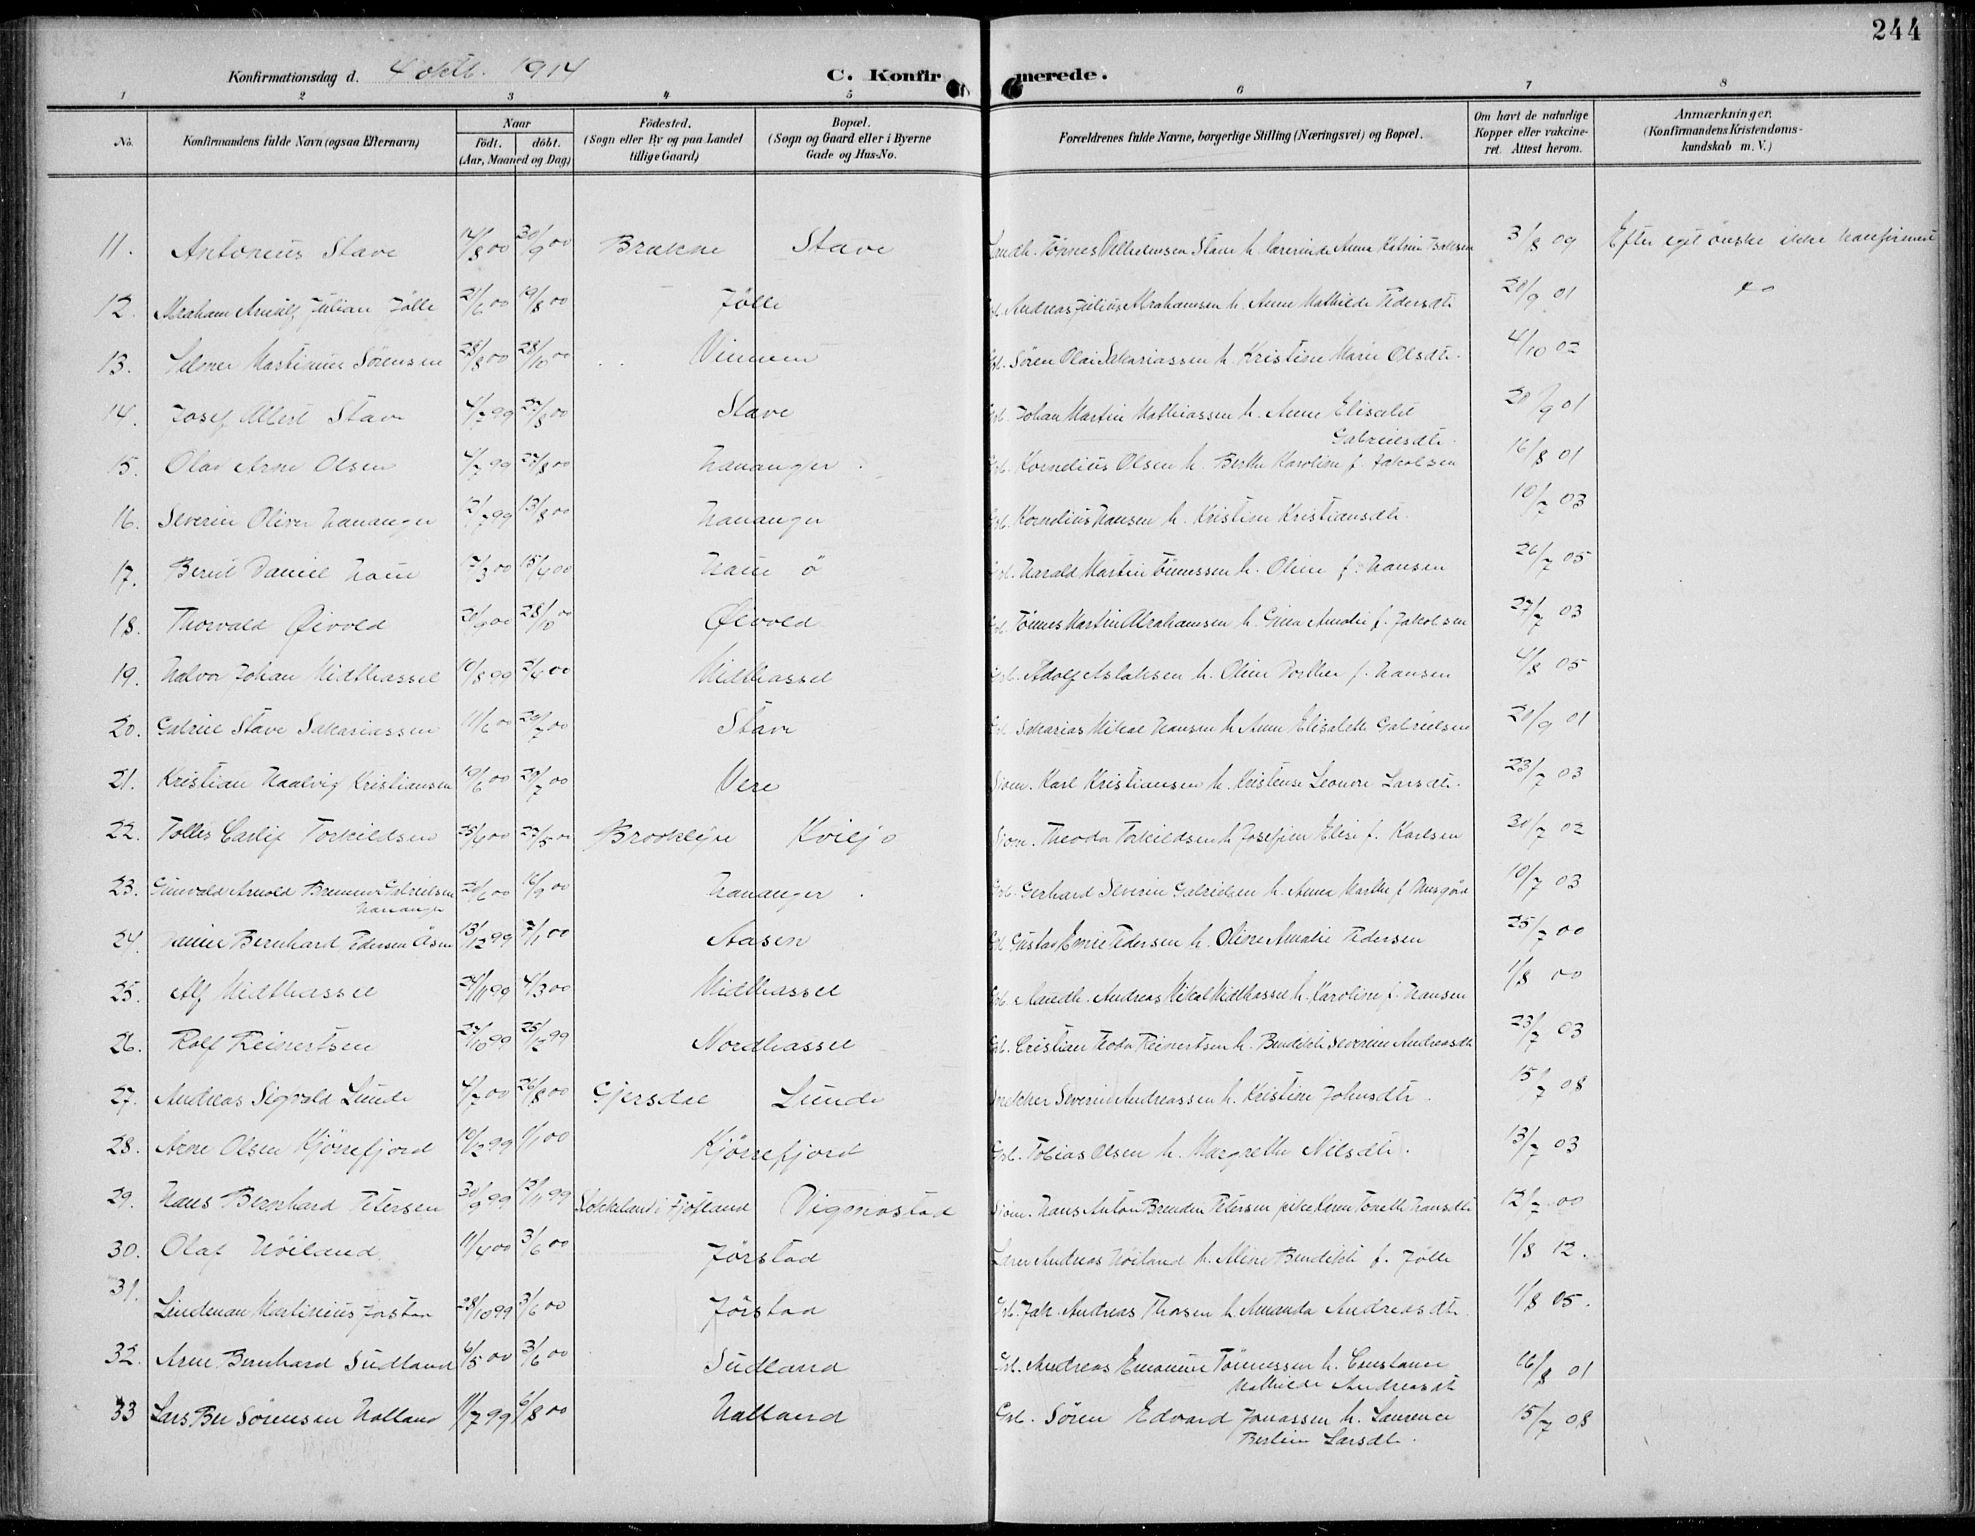 244
Konfirmationsdag d. 4 oktb. 1914 C. Konfirmerede.
1 2 3 4 5 6 7 8
No. Konfirmandens fulde Navn (ogsaa Efternavn) Naar födt. döbt. (Aar, Maaned og Dag) Födested. (Sogn eller By og paa Landet tillige Gaard) Bopæl. (Sogn og Gaard eller i Byerne Gade og Hus-No. Forældrenes fulde Navne, borgerlige Stilling (Næringsvei) og Bopæl. Om havt de naturlige Kopper eller vakcineret. Attest herom. Anmærkninger. (Konfirmandens Kristendomskundskab m. V.)
11. Antonius Stave 14/8 00 30/9 00 Stave Tönnes Stave h. Anna 3/8 09 Efter eget önske ikke konfirmert
12. Abraham Julian Jölle 21/6 00 19/8 00 Jölle Andreas Julius Abrahamsen h. Anne Mathilde Pedersdt. 20/9 01
13. Selmer Martinius Sörensen 28/8 00 28/10 00 Sören Olai Sakariassen h. Kristine Marie Olsdt. 4/10 02
14. Josef Albert Stave 4/7 99 Stave Johan Martin Mathiassen h. Anne Elisabet 20/9 01
Gabrielsdt.
15. Olav Arne Olsen 4/7 99 27/8 00 Hananger Gbl. Kornelius Olsen h. Berthe Karoline f. Jakobsen 16/8 01
16. Severin Oliver Hananger 12/7 99 13/8 00 Hananger Gbl. Kornelius Hansen h. Kristine Kristiansdt. 10/7 03
17. Bernt Daniel Haue 17/3 00 15/4 00 Haue ö Gbl. Harald Martin Tönnessen h. Oline f. Hansen 26/7 05
18. Thorvald Öivold 28/10 00 Öivold Gbl. Tönnes Martin Abrahamsen h. Gina Amalie f. Jakobsen 27/7 03
19. Halvor Johan Midthassel 10/8 99 2/4 00 Midthassel Gbl. Adolf Aslaksen h. Oline Dorthea f. Hansen 4/8 05
20. Gabriel Stave Sakariassen 11/6 00 20/7 00 Stave Gbl. Sakarias Mikal Hansen h. Anne Elisabeth Gabrielsen 20/9 01
21. Kristian Haalvig Kristiansen 10/6 00 29/7 00 Vere Sjöm. Karl Kristiansen h. Kristense Leonore Larsdt. 23/7 03
22. Tollis Torkildsen 25/4 00 27/5 00 Brooklyn Kviljo Sjöm. Theodor Torkildsen h. Josefine Elise f. Karlsen 30/7 02
23. Gunvald Arnold Gabrielsen 20/6 00 16/9 00 Hananger Gbl. Gerhard Severin Gabrielsen h. Anna Marthe f. 10/7 03
Hananger
24. Daniel Bernhard Pedersen Åsen 13/12 99 7/1 00 Aasen Gbl. Gustav Emil Pedersen h. Oline Amalie Pedersen 25/7 00
25. Alf Midthassel 24/11 99 4/3 00 Midthassel Gbl. & Landh. Andreas Mikal Midthassel h. Karoline f. Hansen 1/8 00
26. Rolf Reinertsen 27/10 99 25/12 99 Nordhassel Gbl. Cristian Teodor Reinertsen h. Bendikte Severine Andreasdt. 23/7 03
27. Andreas Sigvald Lunde 4/7 00 26/8 00 Gjersdal Lunde Snekker Severin Andreassen h. Kristine Johnsdt. 15/7 08
28. Arne Olsen Kjörrefjord 10/12 99 1/1 00 Kjörrefjord Gbl. Tobias Olsen h. Margrethe Nilsdt. 13/7 03
29. Hans Bernhard Petersen 30/9 99 12/11 99 i Fjotland Vigmostad Sjöm. Hans Anton Petersen pike Tonette Hansdt. 12/7 00
30. Olaf Höiland 11/4 00 3/6 00 Jörstad Lærer Andreas Höiland h. Aline Bendikte f. Jölle 1/8 12.
31. Lindeman Martinius Jörstad 28/10 99 3/6 00 Jörstad Gbl. Jak. Andreas Thorsen h. Amanda Andreasdt. 1/8 05.
32. Arne Bernhard Sudland 6/5 00 3/6 00 Sudland Gbl. Andreas Emanuel Tönnessen h. Constance 16/8 01
Mathilde Andreasdt.
33 Lars Ber Sörensen Halland 11/7 99 6/8 00 Halland Gbl. Sören Edvard Jonassen h. Laurence 15/7 08
Bertine Larsdt.